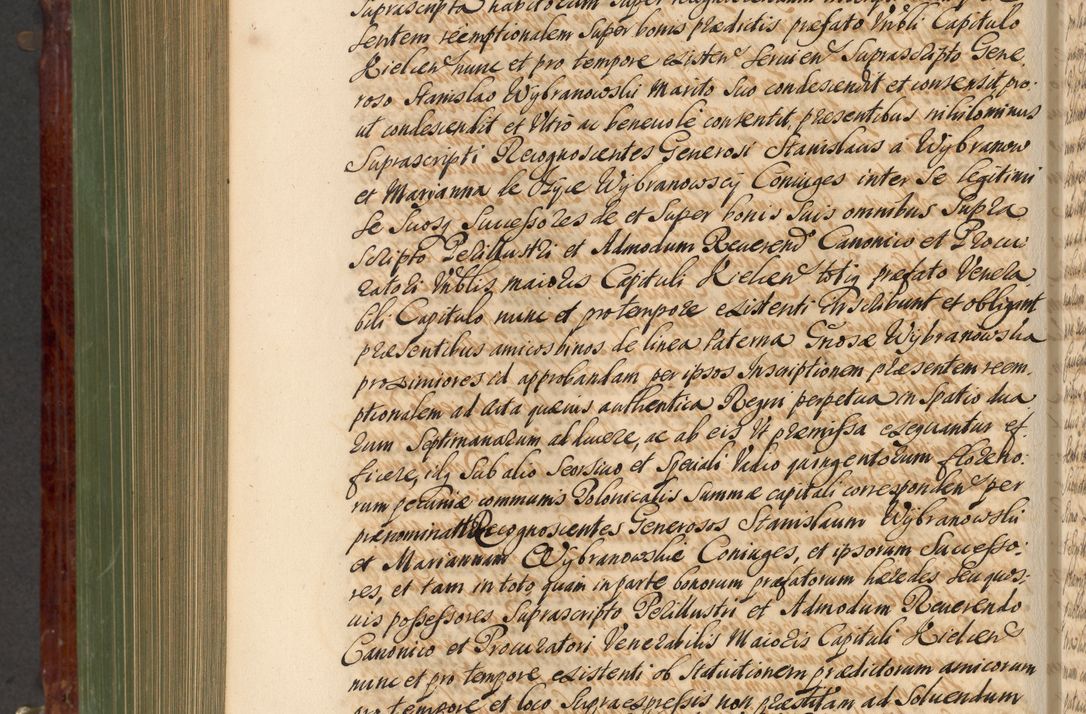 Suprascripta habitorum super
sentem reemptionalem super bonis praedictis praefato Vnbli Capitulo
Kielcen nunc et pro tempore existen seruien Suprascripto Gene
roso Stanislao Wybranowskii Marito Suo condescendit et consensit, pro
ut condescendit et Vltro ac beneuole consentit praesentibus nihilominus
Suprascripti Recognoscentes Generosi Stanislaus a Wybranow
et Marianna de Ozyce Wybranowscy Coniuges inter Se legitimi
Se Suosq Successores de et Super bonis Suis omnibus Supra
scripto Perillustri et Admodum Reuerend Canonico et Procu
ratori Vnblis maioris Capituli Kielcen totiq praefato Venera
bili Capitulo nunc et pro tempore existenti Inscribunt et obligant
praesentibus amicos binos de linea Paterna Gnosae Wybranowska
proximiores ad approbandam per ipsos Inscriptionem praesentem reem
ptionalem ad Acta quaeuis authentica Regni perpetua in spatio dua
rum Septimanarum adducere, ac ab eis Vt praemissa exequantur ef
ficere, idq Sub alio Seorsiuo et Speciali Vadio quingentorum floreno
rum pecuniae communis Polonicalis Summae capitali corresponden per
praenominatos Recognoscentes Generosos Stanislaum Wybranowskii
et Mariannam Wybranowskie Coniuges, et ipsorum Successo
res, et tam in toto quam in parte bonorum praefatorum haeredes Seu quos
uis possessores Suprascripto Perillustri et Admodum Reuerendo
Canonico et Procuratori Venerabilis Maioris Capituli Kielcen
nunc et pro tempore existenti ob Statuitionem praedictorum amicorum
tempore et loco Supraexpressis non praestitam ad Soluendum